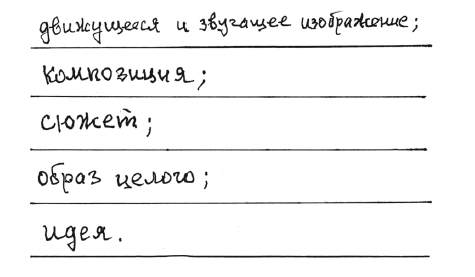 движущееся и звучащее изображение;
композиция;
сюжет;
образ целого;
идея.